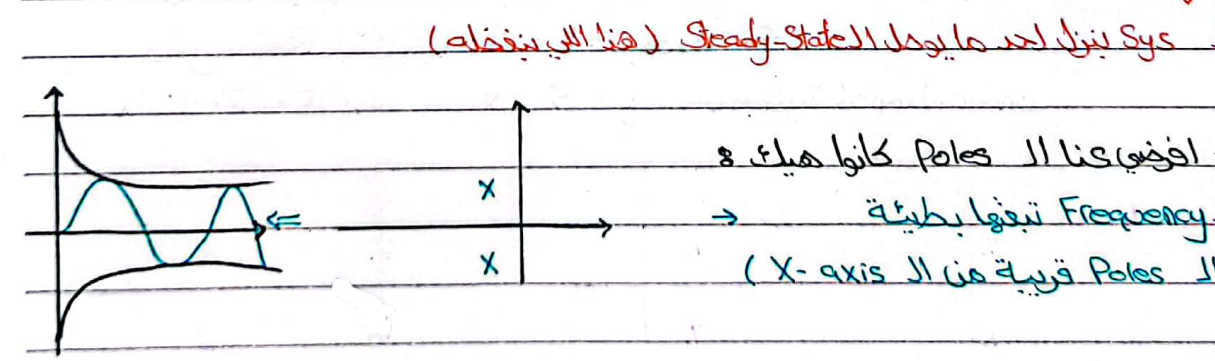 Sys بنزل لحد ما يوصل الـ Steady-State (هذا اللي بنفضله)
افرضي عنا الـ Poles كانوا هيك :
Frequency تبعتها بطيئة ←
الـ Poles قريبة من الـ X-axis )
X
X